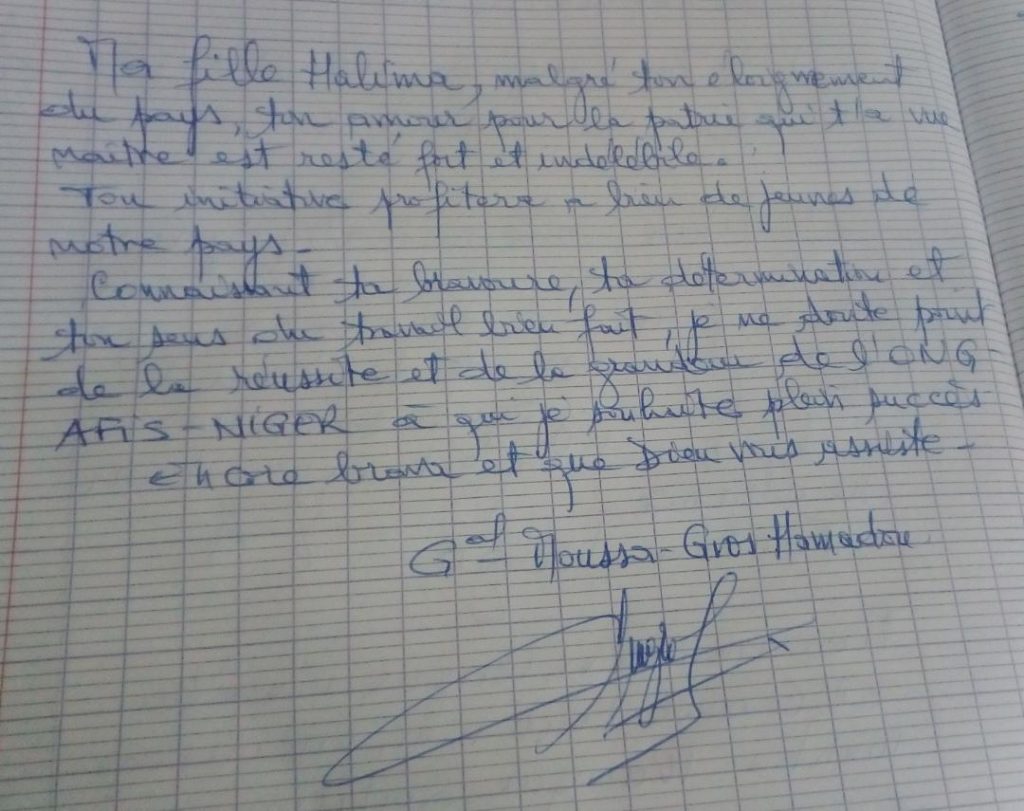 Ma fille Halima, malgré ton eloignement
du pays, ton amour pour la patrie qui t'a vue
naître est resté fort et indélébile.
Ton initiative profitera à bien de jeunes de
notre pays-
Connaissant ta bravoure, ta détermination et
ton sens du travail bien fait, je ne doute point
de la réussite et de la grandeur de l'ONG-
AFIS-NIGER à qui je souhaite plein succès
Encore bravo et que Dieu vous assiste-
Gal Moussa-Gros Hamadou